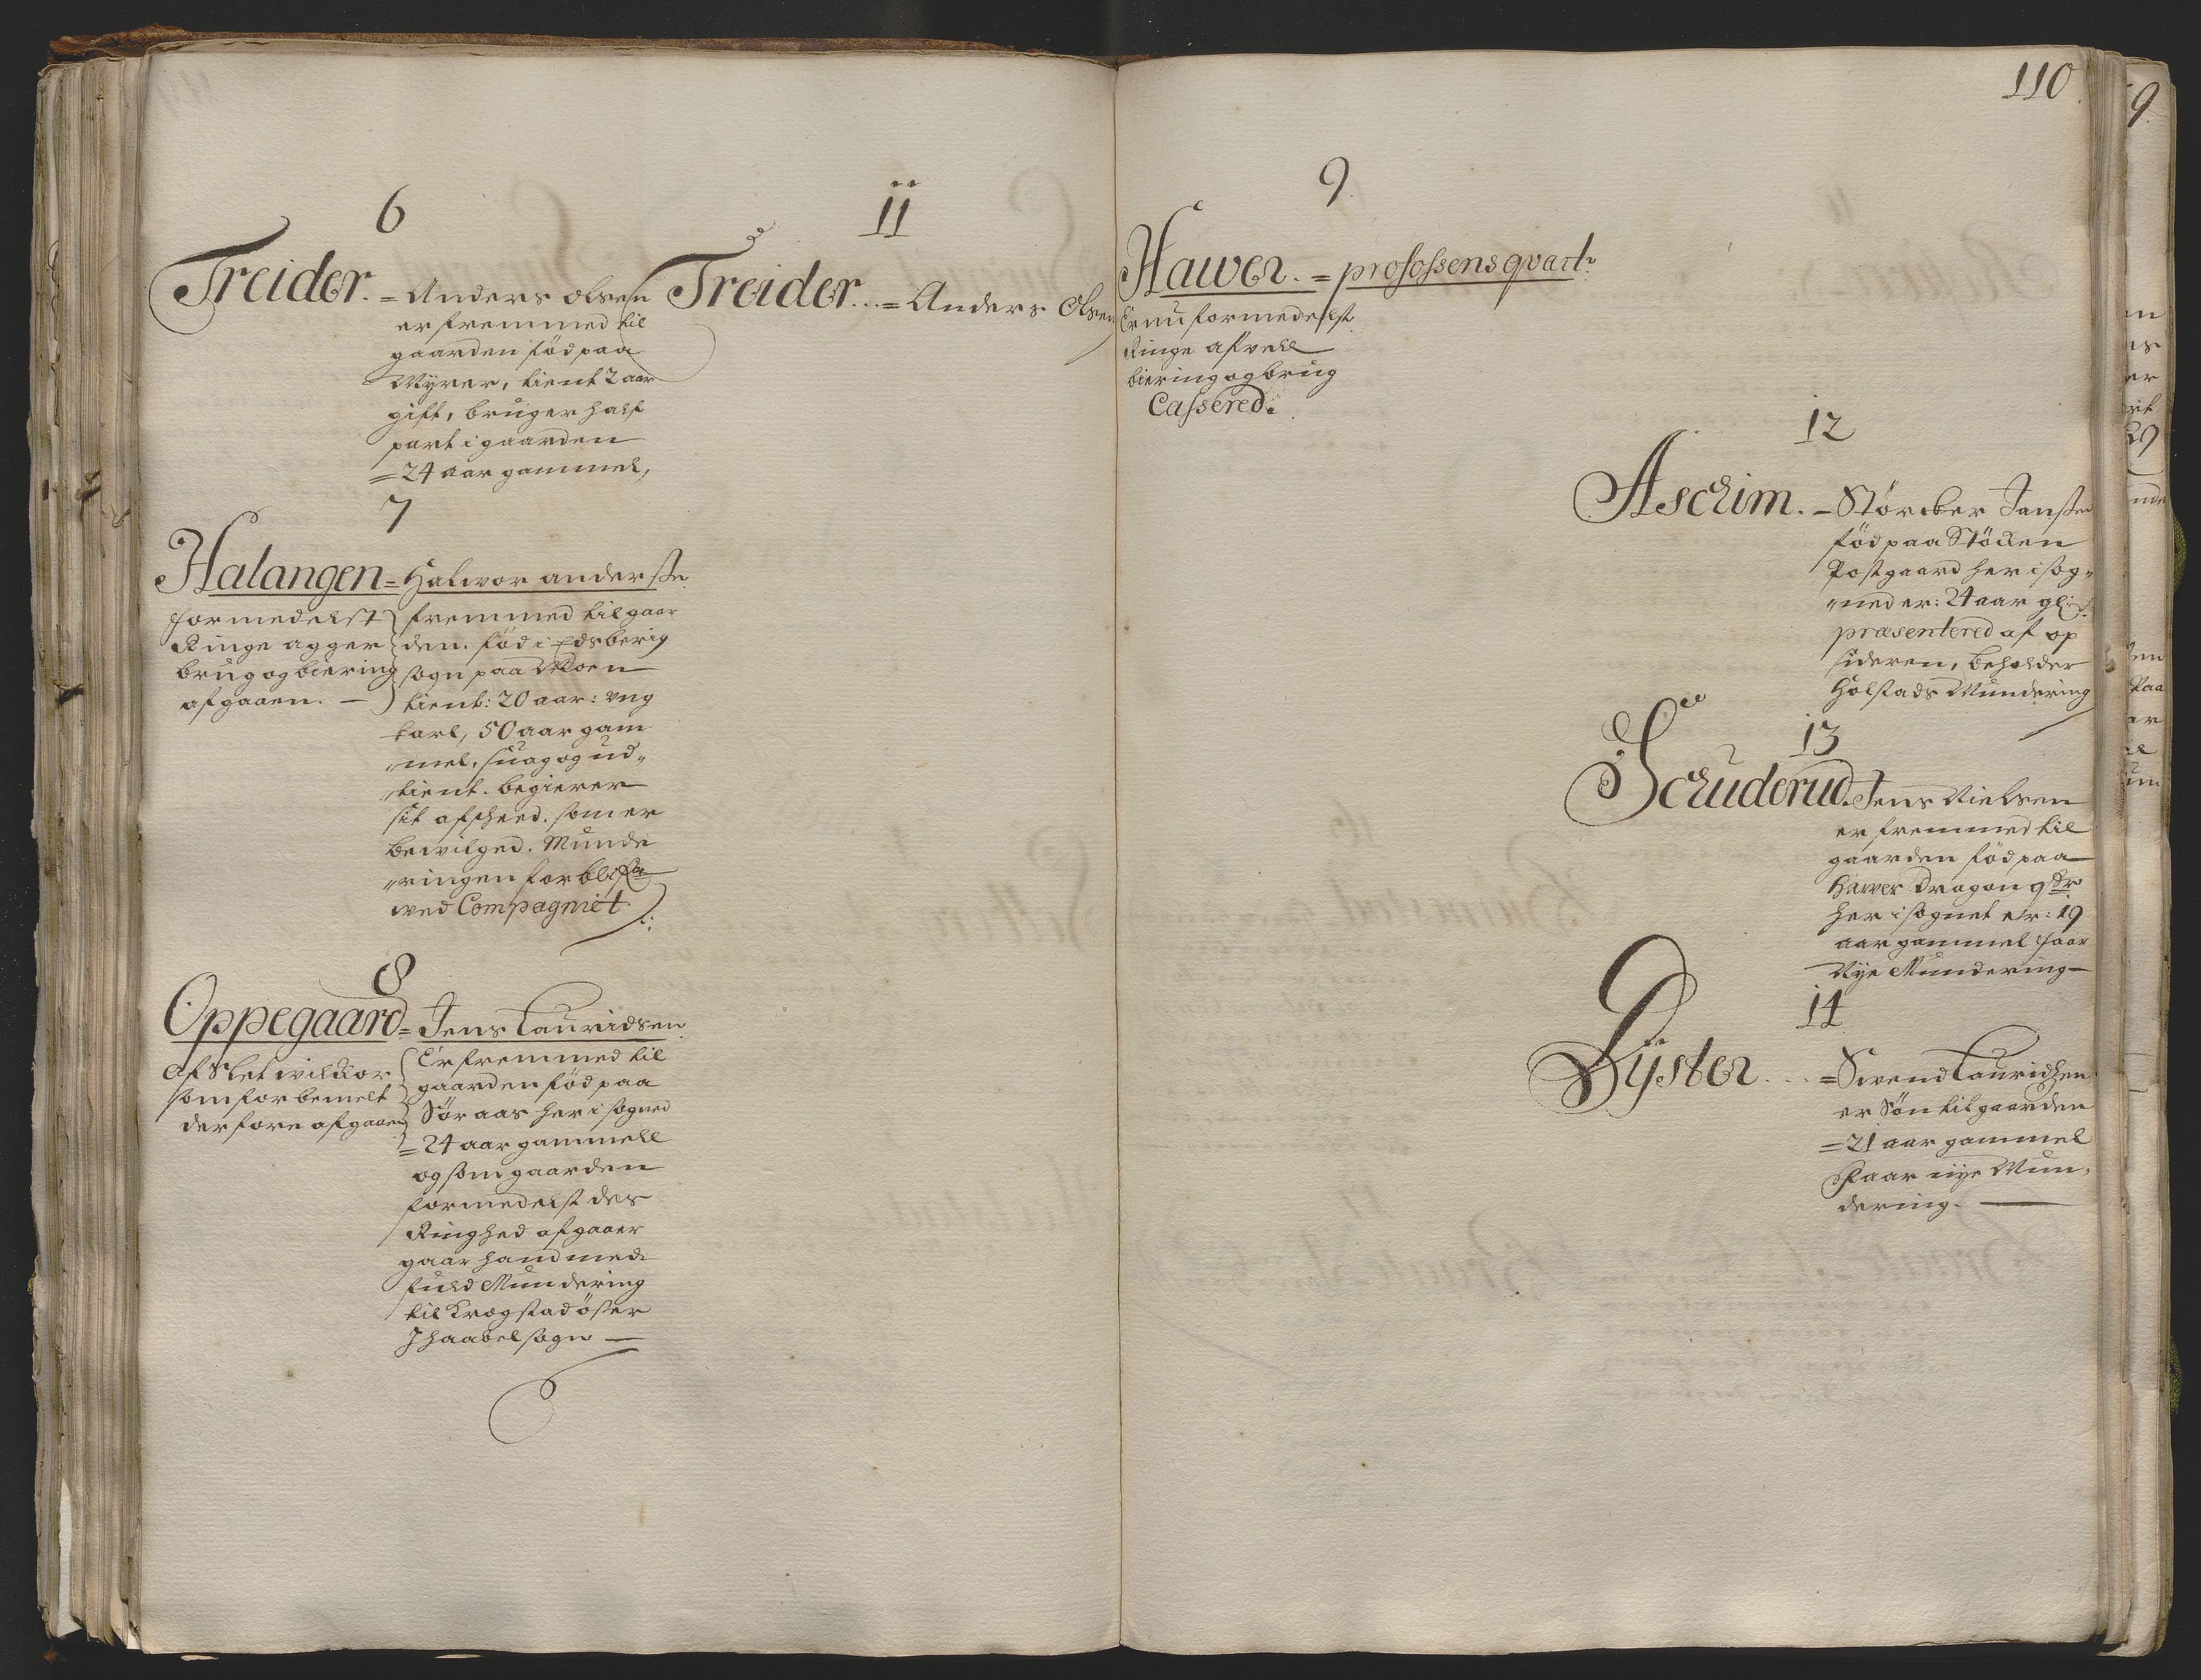 110
6
Treider. = Anders olsen
er fremmed til
gaarden föd paa
Myrer, tient 2 aar
gift, bruger half
part i gaarden
= 24 aar gammel,
7
Halangen = Halwor anderssen
formedelst
Ringe agger
brug og biering
afgaaen. —
fremmed til gaar
den. föd i Edsberig
sogn paa Moen
tient: 20 aar: ung
karl, 50 aar gam
"mel, suag og ud„
tient. begierer
sit afscheed. som er
bewilged. Munde
"ringen forblifr
wed Compagniet
8
Oppegaard = Jens Lauridsen
Af Slet wilckor
som forbemelt
derfore afgaaen
Er fremmed til
gaarden föd paa
Söraas her i sogned
= 24 aar gammell
og som gaarden
formedelst des
Ringhed afgaaer
gaar hand med
fuld Mundering
til Krogstad öfser
J haabel sogn —
11
Treider... = Anders Olsen
9.
Hawer. = profossens qvart
Er nu formedelst
Ringe afvell
biering og brug
Cassered.
12
Aschim. = Störcker Jansen
föd paa Stöcken
Postgaard her i sog„
"ned er: 24 aar gl:
præsentered af op
sideren, beholder
Holstads Mundering
13
Schuderud. Jens Nielsen
er fremmed til
gaarden föd paa
Hawer Dragon qdr
her i sognet er: 19
aar gammel faar
Nye Mundering —
14
Dÿster... = Swend Lauridsen
er Sön til gaarden
= 21 aar gammel
Faar nye Mun„
dering. —